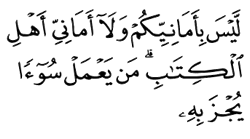 لَّيۡسَ بِأَمَانِيِّكُمۡ وَلَآ أَمَانِيِّ أَهۡلِ
ٱلۡكِتَٰبِۗ مَن يَعۡمَلۡ سُوٓءٗا
يُجۡزَ بِهِۦ